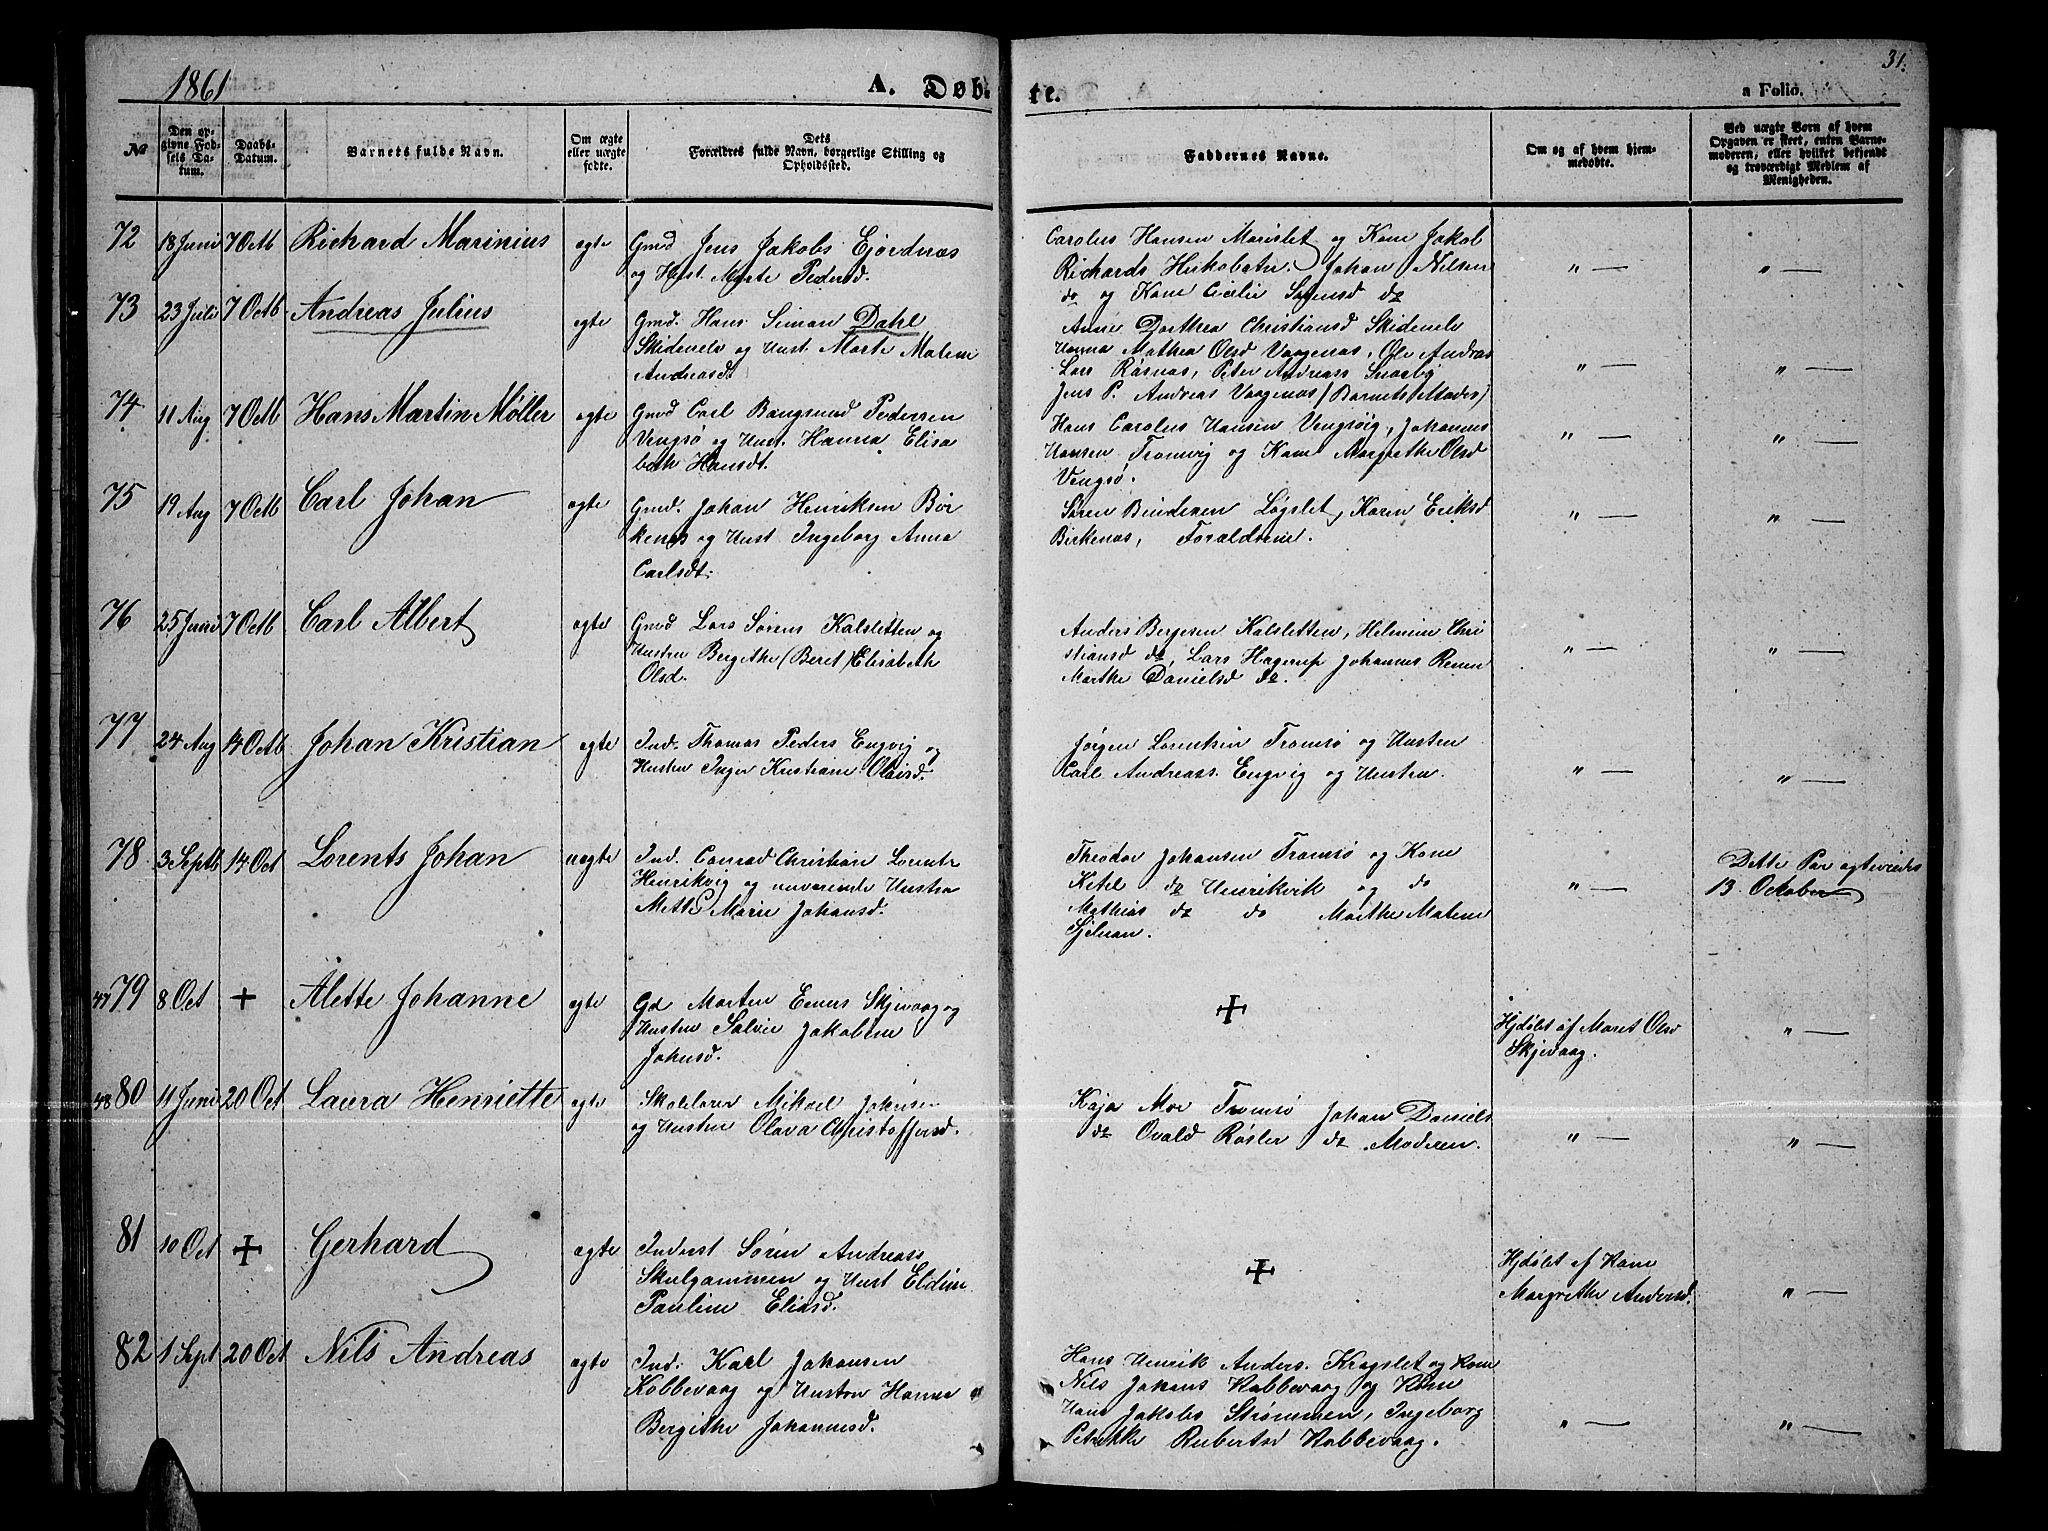 1861
A. Døb-
te.
a Folio.
31.
No
Den op-
givne Fød-
sels Da-
tum.
Daabs-
Datum.
Barnets fulde Navn.
Om ægte
eller uægte
fødte.
Dets
Forældres fulde Navn, borgerlige Stilling og
Opholdssted.
Faddernes Navne.
Om og af hvem hjem-
medøbte.
Ved uægte Børn af hvem
Opgaven er skeet, enten Barne-
moderen, eller hvilket bekjendt
og troværdigt Medlem af
Menigheden.
72
18 Juni
7 Octb
Richard Marinius
ægte
Gmd Jens Jakobs Ejordnæs
og Hust. Marte Pedersd.
Carolus Hansen Marislet og Kone Jakob
Richards Johan Nilsen
do og Kone Cicilie Sørensd do
" —
" —
73
23 Juli
7 Octb
Andreas Julius
ægte
Gmd. Hans Simon Dahl
Skidenelv og Hust. Marte Malene
Andreasdt
Anne Dorthea Christiansd Skidenelv
Hanna Mathea Olsd Vaagenæs, Ole Andreas
Lars Rasnæs, Peter Andreass Snarby
Jens P. Andreas Vaagenæs (Barnets Moder)
" —
" —
74
11 Aug
7 Octb
Hans Martin Møller
ægte
Gmd Carl Bangsund Pedersen
Vengsø og Hust. Hanna Elisa
beth Hansdt.
Hans Carolus Hansen Vengsøig, Johannes
Hansen Tromvig og Kone Margrethe Olsd
Vengsø.
" —
" —
75
19 Aug
7 Octb
Carl Johan
ægte
Gmd. Johan Henriksen Bør
kenæs og Hust Ingeborg Anna
Carlsdt.
Søren Bendixen Løgslet, Karen Eriksd
Birkenæs, Forældrene.
" —
" —
76
25 Juni
7 Octb
Carl Albert
ægte
Gmd Lars Sørens Kalsletten og
Hustru Bergithe (Beret) Elisabeth
Olsd.
Anders Bergesen Kalsletten, Helmine Chri
stiansd do, Lars Hagerup Johannes Renen
Marthe Danielsd do.
" —
" —
77
24 Aug
14 Octb
Johan Kristian
ægte
Ind. Thomas Peders Engvig og
Hustru Inger Kristiane Olaisd.
Jørgen Lorentsen Tromsø og Hustru
Carl Andreass. Engvig og Hustru.
" —
" —
78
3 Septb
14 Oct
Lorents Johan
uægte
Ind. Conrad Christian Lorents
Henrikvig og nuværende Hustru
Mette Marie Johansd.
Theodor Johansen Tromsø og Kone
Ketil do Henrikvik og do
Mathias do do Marthe Malene
Sjelnan.
" —
Dette Par ægteviedes
13 October
47 79
8 Oct
+
Alette Johanne
ægte
Gd Morten Eners Skjevaag og
Hustru Salvie Jakobine
Johnsd.
+
Hjdøbt af Maret Olsd
Skjevaag.
" —
48 80
11 Juni
20 Oct
Laura Henriette
ægte
Skolelærer Mikael Johnsen
og Hustru Olava Christoffersd.
Kaja Moe Tromsø Johan Daniels
do Ovald Røsler do Moderen.
" —
" —
81
10 Oct
+
Gerhard
ægte
Inderst Sören Andreass
Skulgammen og Hust Eldine
Pauline Eliasd.
+
Hjdøbt af Kone
Margrethe Andersd.
" —
82
1 Sept
20 Oct
Nils Andreas
ægte
Ind: Karl Johansen
Kobbevaag og Hustru Hanna
Bergithe Johannesd.
Hans Henrik Anders. Krogslet og Kone
Nils Johans Kobbevaag og Kone
Hans Jakobs Strømmen, Ingeborg
Petrikke Robertsd Kobbevaag.
" —
" —